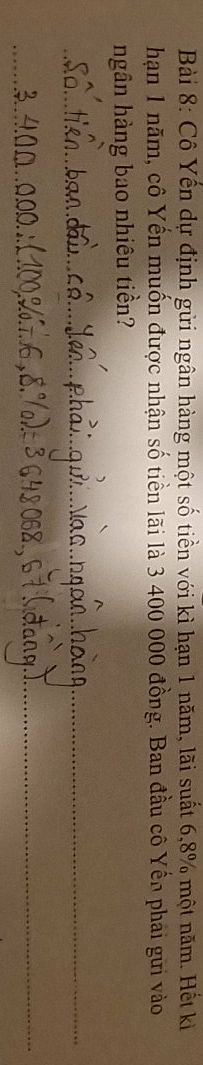 Bài 8: Cô Yến dự định gửi ngân hàng một số tiền với kì hạn 1 năm, lãi suất 6,8% một năm. Hết kì
hạn 1 năm, cô Yến muốn được nhận số tiền lãi là 3 400 000 đồng. Ban đầu cô Yến phải gửi vào
ngân hàng bao nhiêu tiền?
Số tiền ban đầu cô Yến phải gửi vào ngân hàng
3 400 000:(100%-6,8%)=3648068,67(đồng)